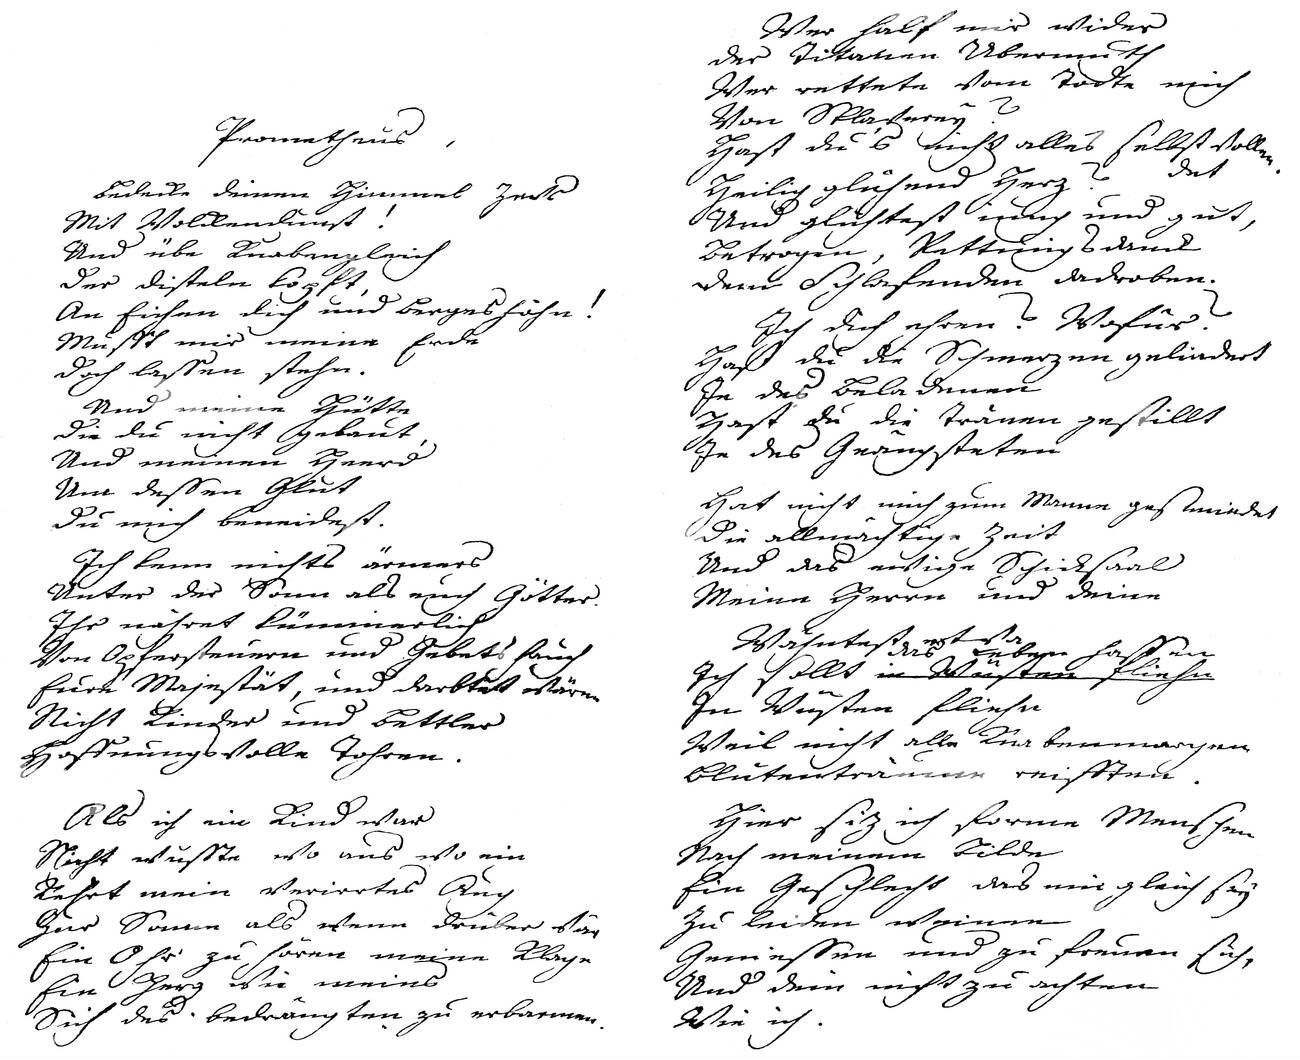 Prometheus,
Bedecke deinen Himmel Zevs
Mit Wolckendunst!
Und übe Knabengleich
Der disteln köpft,
An Eichen dich und Bergeshöhn!
Musst mir meine Erde
Doch lassen stehn.
Und meine Hütte
Die du nicht gebaut,
Und meinen Heerd
Um dessen Glut
Du mich beneidest.
Ich kenn nichts ärmers
Unter der Sonn als euch Götter.
Ihr nähret kümmerlich
Von Opfersteuern und Gebetshauch
Eure Majestät, und darbtet wären
Nicht Kinder und Bettler
Hoffnungsvolle Tohren.
Als ich ein Kind war
Nicht wusste wo aus wo ein
Kehrt mein verirrtes Aug
Zur Sonne als wenn drüber wär
Ein Ohr zu hören meine Klage
Ein Herz wie meins
Sich des bedrängten zu erbarmen.
Wer half mir wider
der Titanen Übermuth
Wer rettete vom Todte mich
Von Sklaverey?
Hast du's nicht alles selbst vollen-
det
Heilig glühend Herz?
Und glühtest iung und gut,
Betrogen, Rettungsdanck
dem Schlafenden dadroben.
Ich dich ehren? Wofür?
Hast du die Schmerzen gelindert
Je des Beladenen
Hast du die Tränen gestillt
Je des Geängsteten
Hat nicht mich zum Manne geschmiedet
Die allmächtige Zeit
Und das ewige Schicksaal
Meine Herrn und deine
Wähntest etwa
das Leben hassen
Ich sollt in Wüsten fliehn
In Wüsten fliehn
Weil nicht alle Knabenmorgen
Blütenträume reifften.
Hier siz ich forme Menschen
Nach meinem Bilde
Ein Geschlecht das mir gleich sey
Zu leiden weinen
Geniessen und zu freuen sich,
Und dein nicht zu achten
Wie ich.